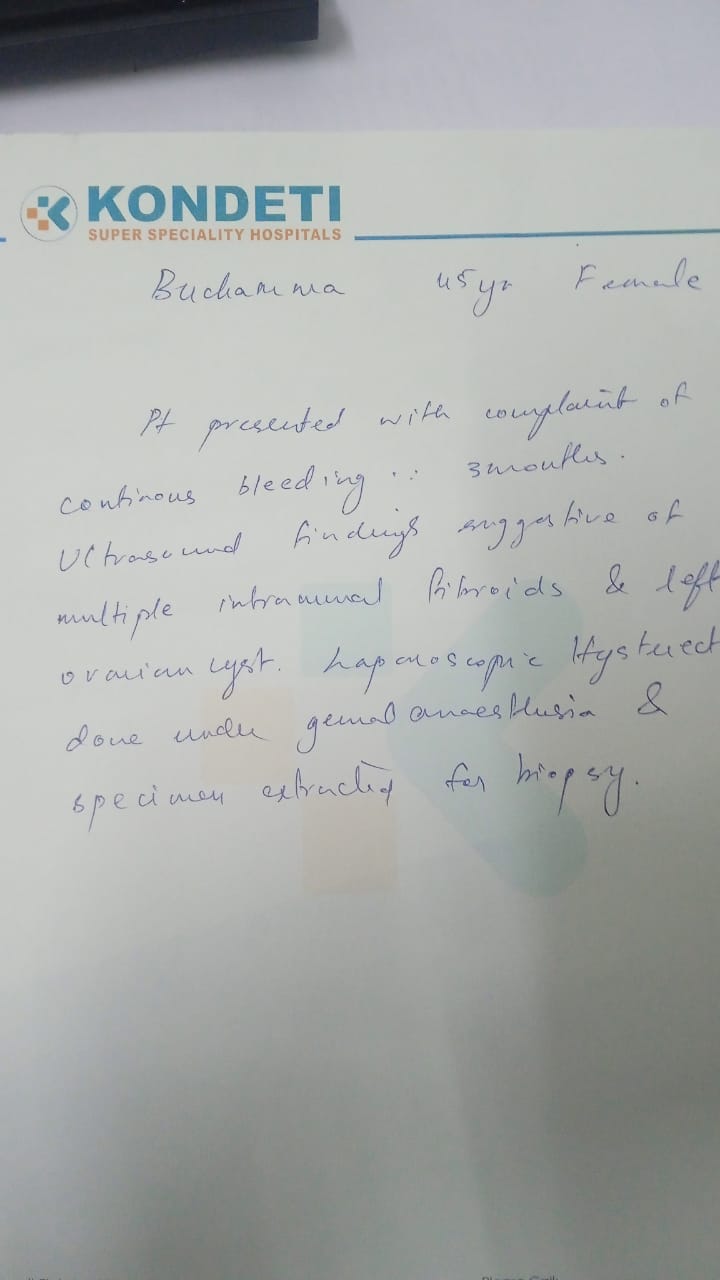 KONDETI
SUPER SPECIALITY HOSPITALS
Buchamma 45yr Female
Pt presented with complaint of
continous bleeding ∵ 3months.
Ultrasound findings suggestive of
multiple intramural fibroids & left
ovarian cyst. Laparoscopic Hysterect
done under general anaesthesia &
specimen extracted for biopsy.